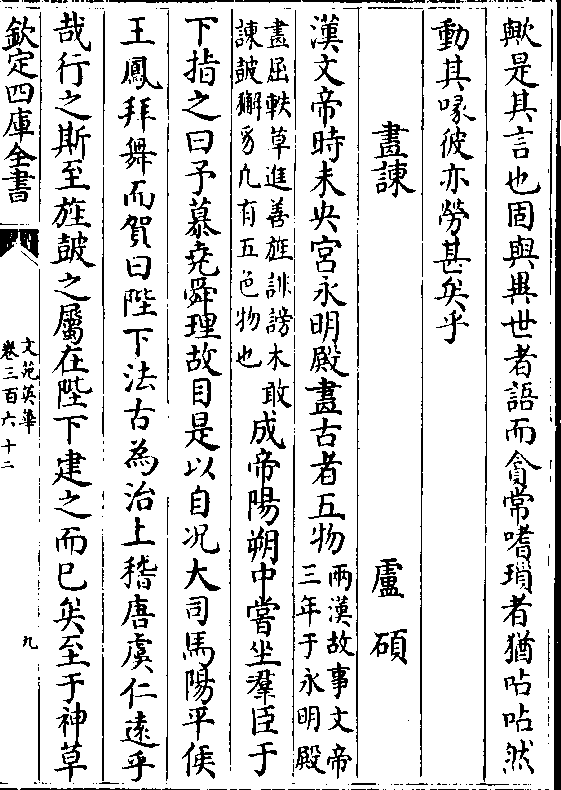 歟是其言也固與異世者語而貪常嗜瑣者猶呫呫然
動其喙彼亦勞甚矣乎
畫諫　盧碩
漢文帝時未央宮永明殿畫古者五物兩漢故事文帝三年于永明殿
畫屈軼草進善旌誹謗木敢諫鼓獬豸凡有五色物也成帝陽朔中嘗坐羣臣于
下指之曰予慕堯舜理故目是以自况大司馬陽平侯
王鳳拜舞而賀曰陛下法古為治上稽唐虞仁遠乎
哉行之斯至旌鼓之屬在陛下建之而已矣至于神草
欽定四庫全書
文苑英華
卷三百六十二
九